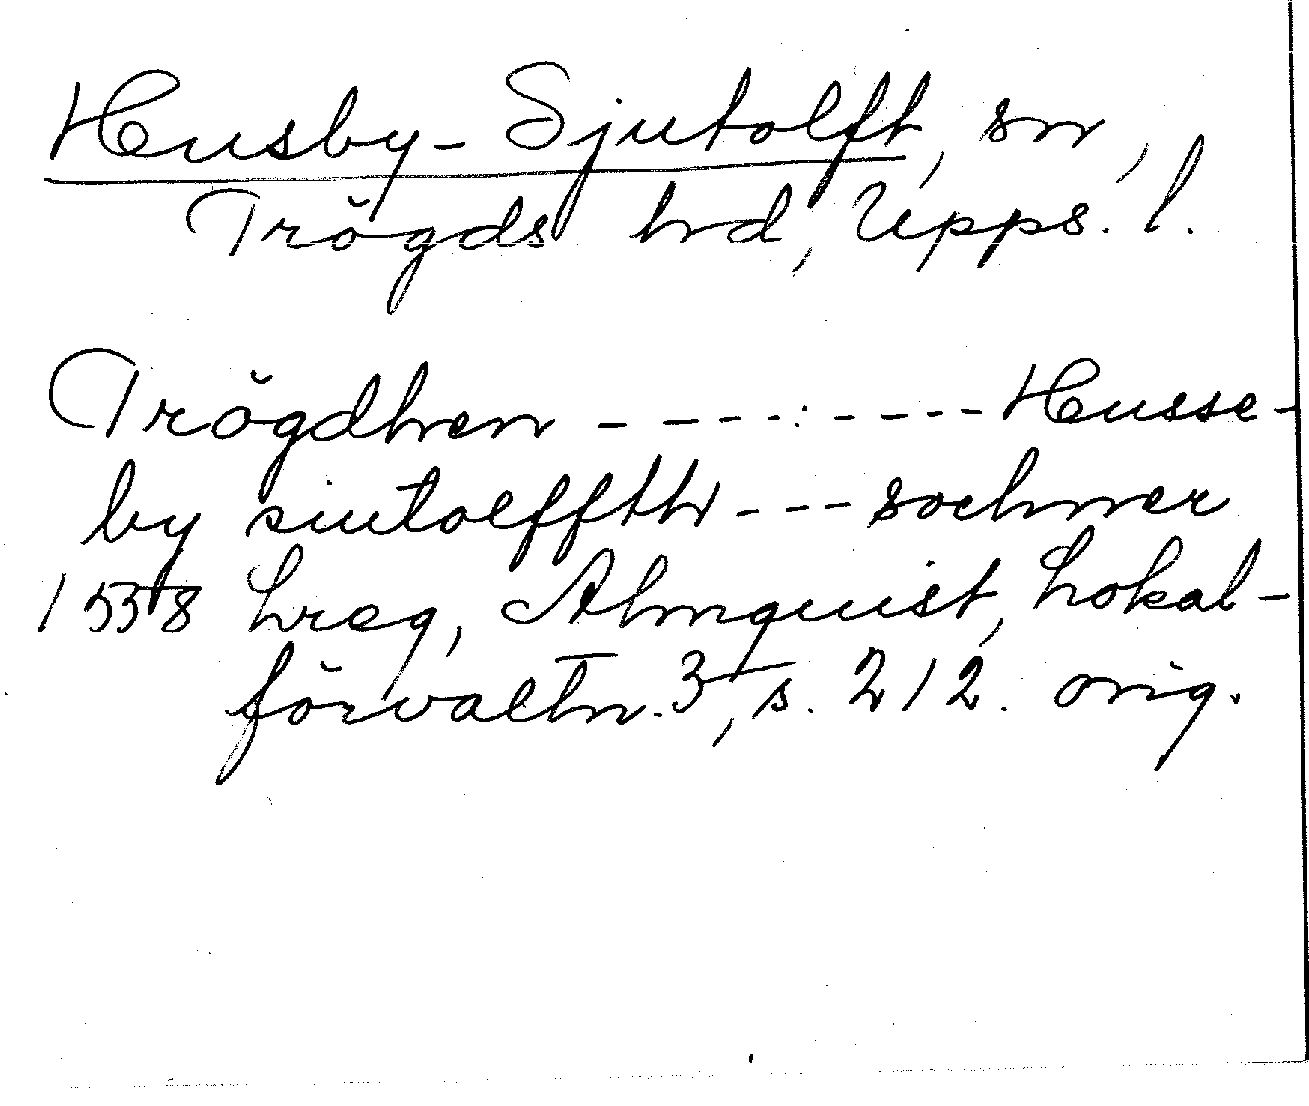 Husby-Sjutolft, sn,
Trögds hd, Upps. l.
Trögdhen - - - - : - - - - Husse-
by siutolffth - - - sochner
1538 Lreg, Almquist, Lokal-
förvaltn. 3, s. 212. orig.